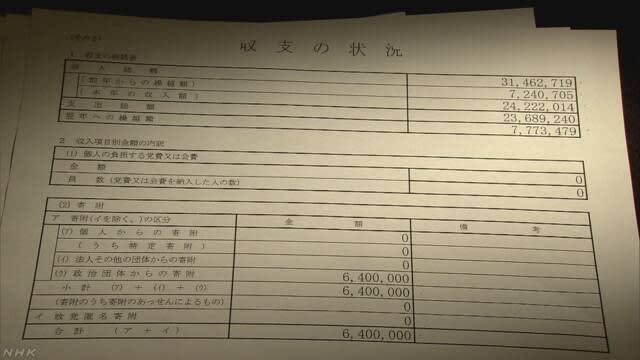 (その2)
収 支 の 状 況
1 収支の総括表
収 入 総 額 31,462,719
(前年からの繰越額) 7,240,705
(本年の収入額) 24,222,014
支 出 総 額 23,689,240
翌年への繰越額 7,773,479
2 収入項目別金額の内訳
(1) 個人の負担する党費又は会費
金 額 0
員 数 (党費又は会費を納入した人の数) 0
(2) 寄 附
ア 寄附(イを除く。)の区分 金 額 備 考
(ｱ) 個 人 か ら の 寄 附 0
(う ち 特 定 寄 附) 0
(ｲ) 法人その他の団体からの寄附 0
(ｳ) 政治団体からの寄附 6,400,000
小 計 (ｱ) + (ｲ) + (ｳ) 6,400,000
(寄附のうち寄附のあっせんによるもの) 0
イ 政党匿名寄附 0
合 計 (ア + イ) 6,400,000
NHK